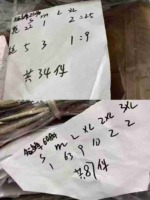 S M L XL
22 1 2=25
5 3 1:9
共34件
S M L XL 2XL 3XL
1 63 9 10 2 2
共87件